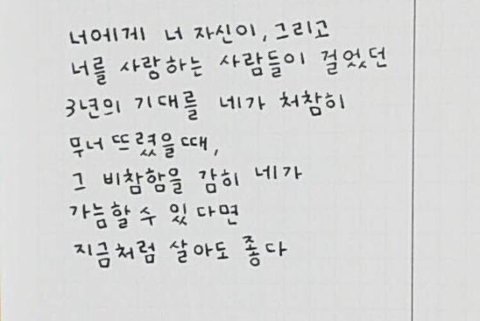 너에게 너 자신이, 그리고
너를 사랑하는 사람들이 걸었던
3년의 기대를 네가 처참히
무너뜨렸을때,
그 비참함을 감히 네가
가늠할 수 있다면
지금처럼 살아도 좋다